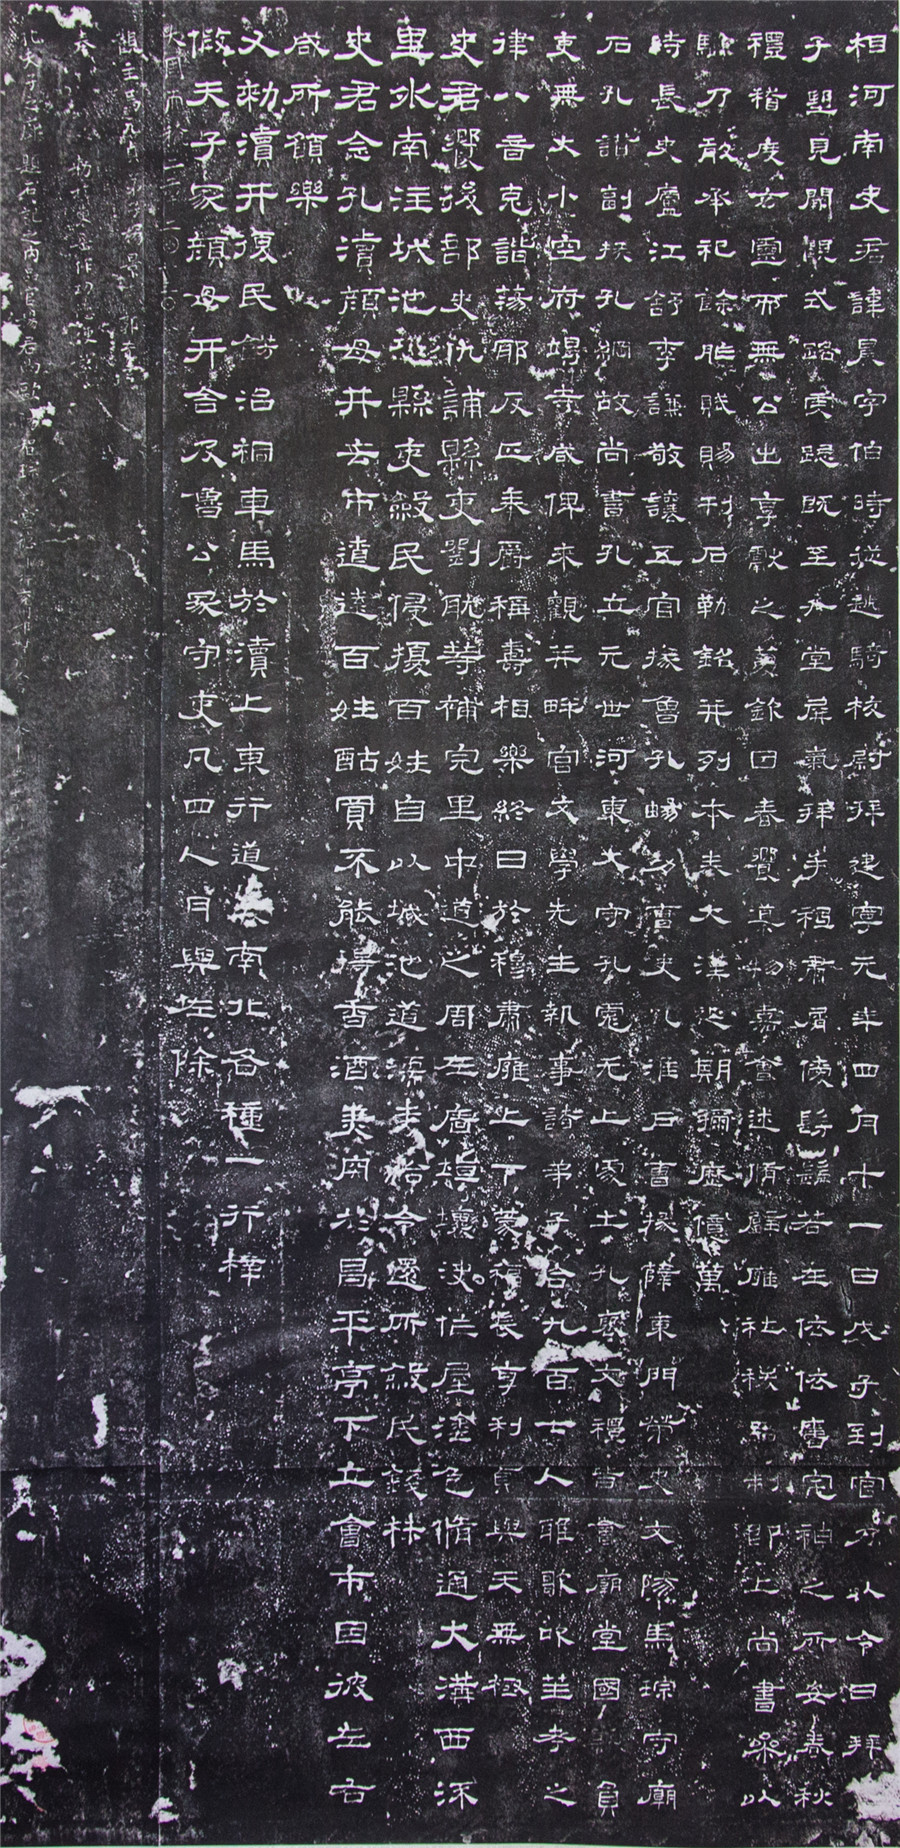 相河南史君諱晨字伯時從越騎校尉拜建寧元年四月十一日戊子到官乃以令日拜
子望見闕觀式路虔跽既至升堂屏氣拜手祗肅屑僾髣髴若在依依舊宅神之所安春秋
禮稽度玄靈而無公出享獻之薦欽因春饗導物嘉會述脩辟雍社稷品制即上尚書參以
驗乃敢承祀餘胙賦賜刊石勒銘并列本奏大漢延期彌歷億萬
時長史廬江舒李謙敬讓五官掾魯孔暘功曹史孔淮戶曹掾薛東門榮史文陽馬琮守廟
石孔讚副掾孔綱故尚書孔立元世河東大守孔彪元上處士孔褒文禮皆會廟堂國縣員
吏無大小空府竭寺咸俾來觀并畔宮文學先生執事諸弟子合九百七人雅歌吹笙考之
律八音克諧蕩邪反正奉爵稱壽相樂終日於穆肅雍上下蒙福長享利貞與天無極
史君饗後部史仇誧縣吏劉耽等補完里中道之周左廧垣壞決作屋塗色脩通大溝西流
里外南注城池恐縣吏斂民侵擾百姓自以城池道濡麦給令還所斂民錢材
史君念孔瀆顏母井去市遼遠百姓酤買不能得香酒美肉於昌平亭下立會市因彼左右
咸所願樂
又勑瀆井復民餝治桐車馬於瀆上東行道表南北各種一行梓
假夫子冢顏母井舍及魯公冢守吏凡四人月與佐除